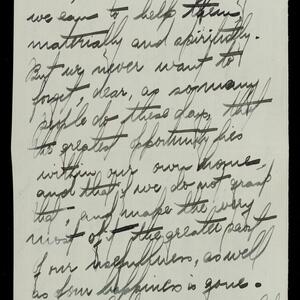 we can to help them
materially and spiritually.
But we never want to
forget, dear, as so many
people do these days, that
the greatest opportunity lies
within our own home,
and that if we do not grasp
that, and make the very
most of it the greater part
of our usefulness, as well
as our happiness is gone.